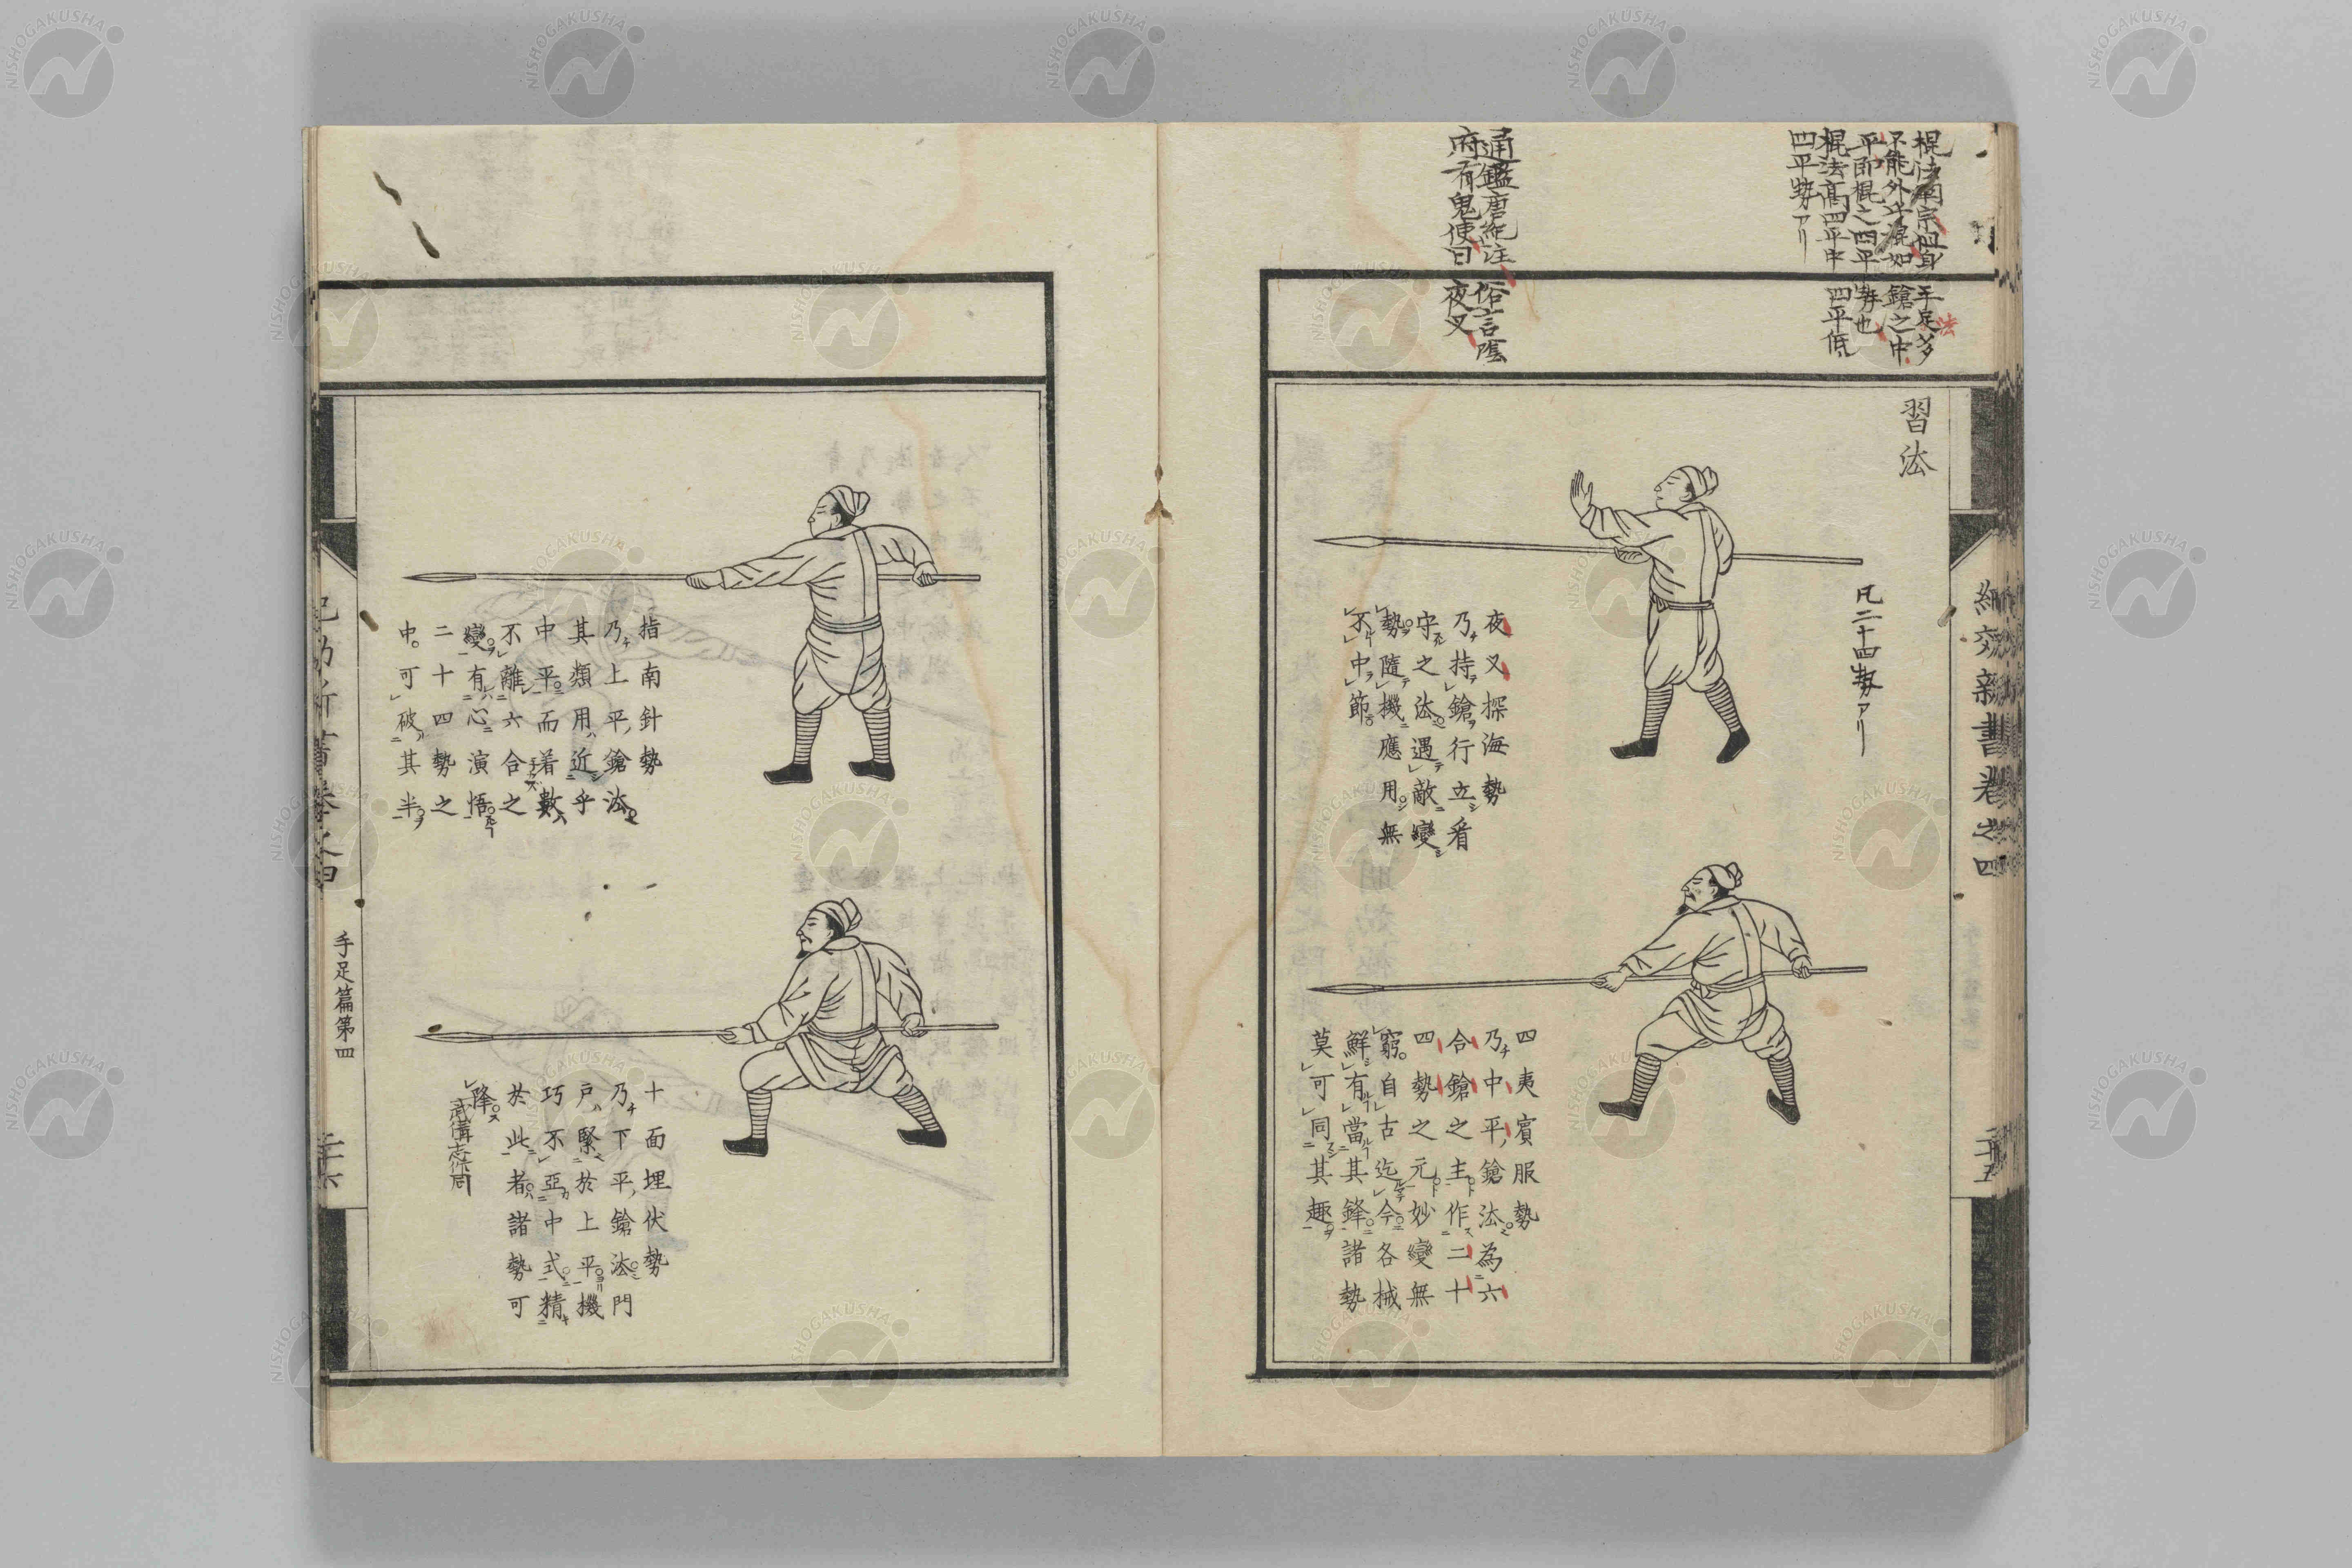 棍法
平即棍之四平勢也
棍法高四平中四平低
四平勢アリ
通鑑唐紀註俗言陰
府有鬼使曰夜叉
紀效新書卷之四
二十五
習法
凡二十四勢アリ
夜叉探海勢
乃持鎗行立看
守之法遇敵變
勢隨機應用無
不中節
四夷賓服勢
乃中平鎗法為六
合鎗之主作二十
四勢之元妙變無
窮自古迄今各械
鮮有當其鋒諸勢
莫可同其趣
指南針勢
乃上平鎗法
其類用近乎
中平而着數
不離六合之
變有心演悟
二十四勢之
中可破其半
十面埋伏勢
乃下平鎗法門
戶緊於上平機
巧不亞中式精
於此者諸勢可
降
武備志作周
手足篇第四
二十六
NISHOGAKUSHA